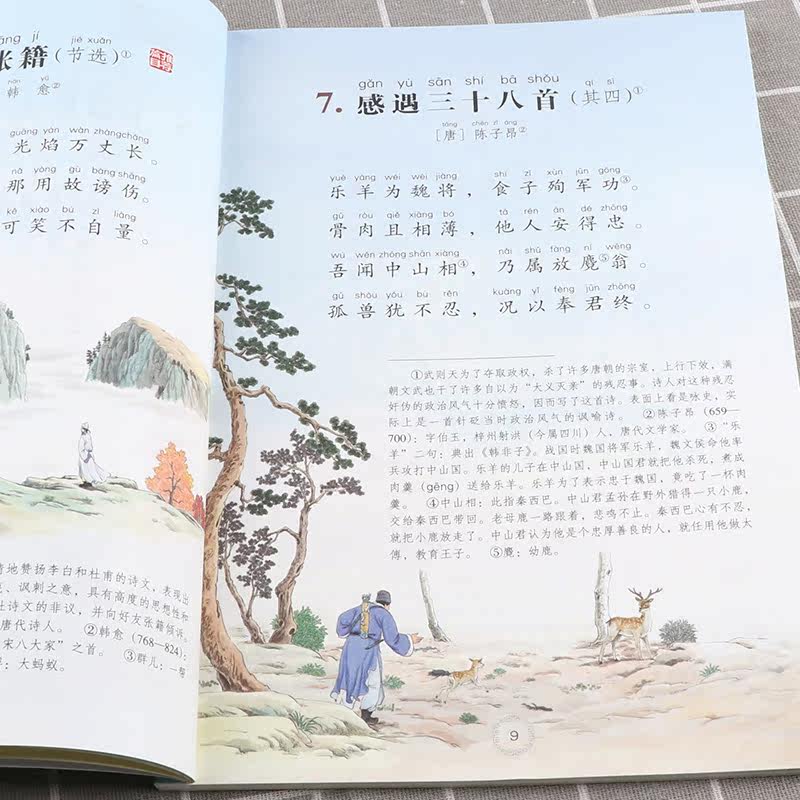 jí jié xuǎn
张籍(节选)①
yù
韩 愈②
guāng yàn wàn zhàng cháng
光焰万丈长。
nǎ yòng gù bàng shāng
那用故谤伤。
kě xiào bú zì liàng
可笑不自量。
地赞扬李白和杜甫的诗文,表现出
、讽刺之意,具有高度的思想性和
诗文的非议,并向好友张籍倾诉。
唐代诗人。 ②韩愈(768—824):
宋八大家”之首。 ③群儿:一帮
:大蚂蚁。
gǎn yù sān shí bā shǒu qí sì
7. 感遇三十八首(其四)①
táng chén zǐ áng
[唐] 陈子昂②
yuè yáng wéi wèi jiàng shí zǐ xùn jūn gōng
乐羊为魏将,食子殉军功③。
gǔ ròu qiě xiāng bó tā rén ān dé zhōng
骨肉且相薄,他人安得忠。
wú wén zhōng shān xiàng nǎi shǔ fàng ní wēng
吾闻中山相④,乃属放麑⑤翁。
gū shòu yóu bù rěn kuàng yǐ fèng jūn zhōng
孤兽犹不忍,况以奉君终。
①武则天为了夺取政权,杀了许多唐朝的宗室,上行下效,满
朝文武也干了许多自以为“大义灭亲”的残忍事。诗人对这种残忍
奸伪的政治风气十分愤怒,因而写了这首诗。表面上看是咏史,实
际上是一首针砭当时政治风气的讽喻诗。 ②陈子昂(659—
700):字伯玉,梓州射洪(今属四川)人,唐代文学家。 ③“乐
羊”二句:典出《韩非子》。战国时魏国将军乐羊,魏文侯命他率
兵攻打中山国。乐羊的儿子在中山国,中山国君就把他杀死,煮成
肉羹(gēng)送给乐羊。乐羊为了表示忠于魏国,竟吃了一杯肉
羹。 ④中山相:此指秦西巴。中山君孟孙在野外猎得一只小鹿,
交给秦西巴带回。老母鹿一路跟着,悲鸣不止。秦西巴心有不忍,
就把小鹿放走了。中山君认为他是个忠厚善良的人,就任用他做太
傅,教育王子。 ⑤麑:幼鹿。
9